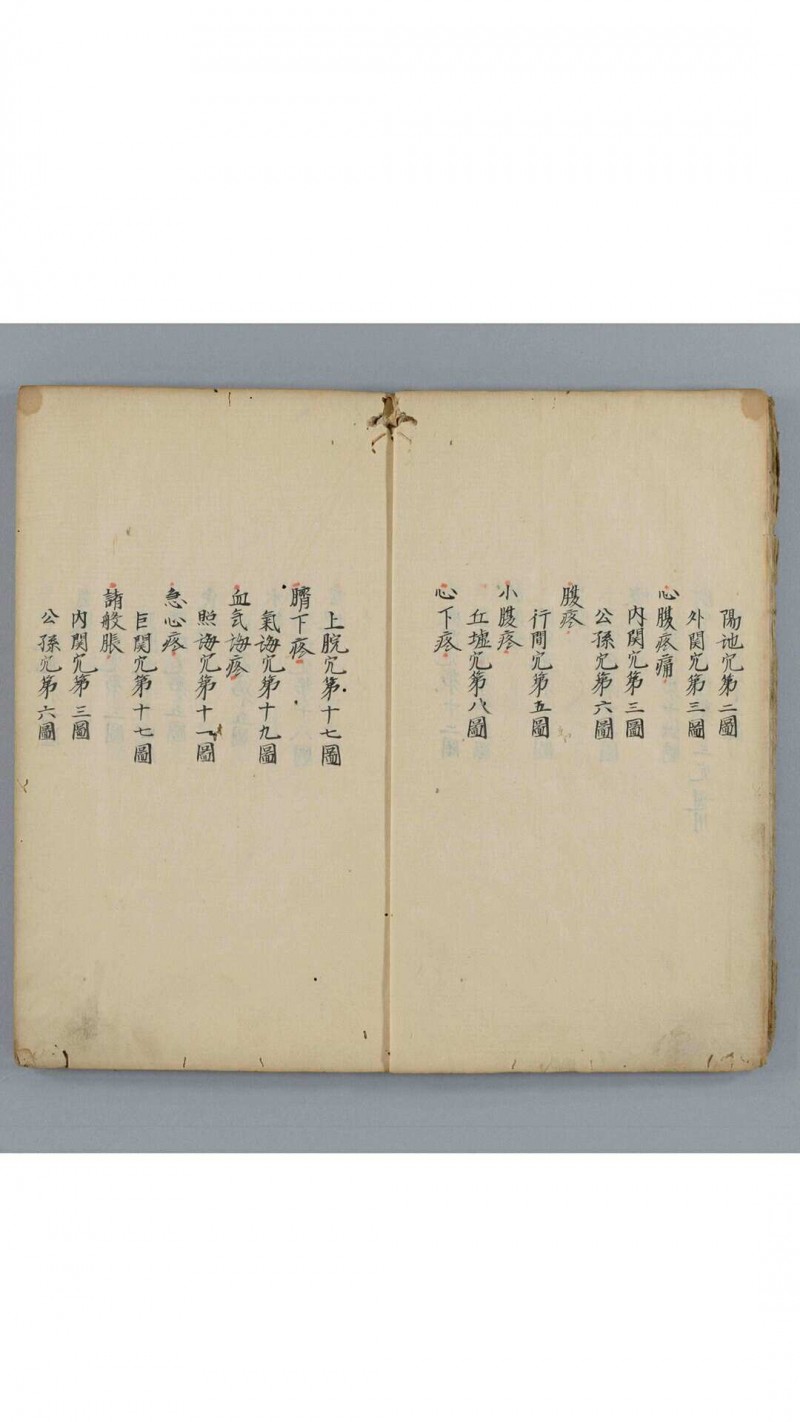 陽池穴第二圖
外関穴第三圖
心腹疼痛
内関穴第三圖
公孫穴第六圖
腹疼
行間穴第五圖
小腹疼
丘墟穴第八圖
心下疼
上脘穴第十七圖
臍下疼
氣海穴第十九圖
血氣海疼
照海穴第十一圖
急心疼
巨関穴第十七圖
諸般脹
内関穴第三圖
公孫穴第六圖